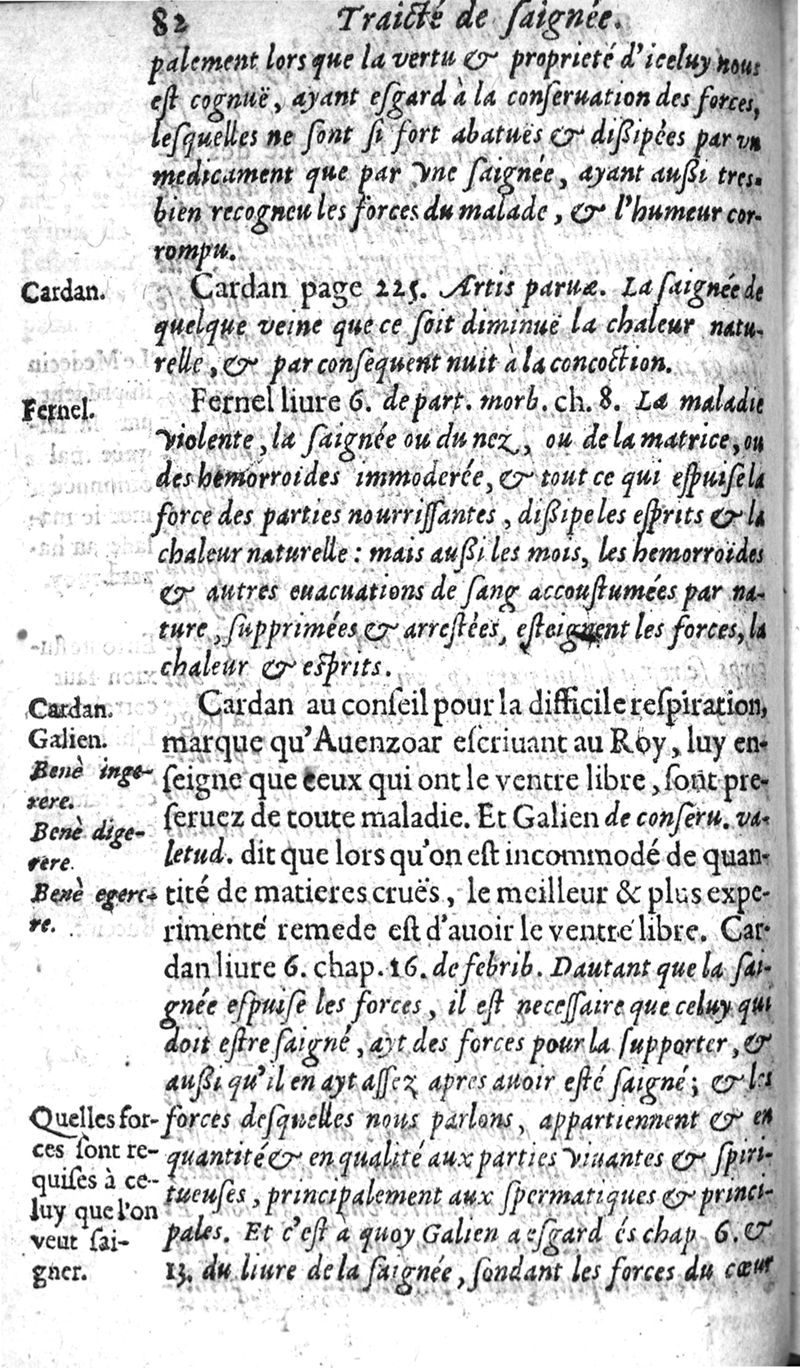 82 Traicté de ſaignée.
palement lors que la vertu & proprieté d'iceluy nous
eſt cognuë, ayant eſgard à la conſeruation des forces,
leſquelles ne ſont ſi fort abatuës & diſſipées par vn
medicament que par vne ſaignée, ayant auſſi tres-
bien recogneu les forces du malade, & l'humeur cor-
rompu.
Cardan.
Cardan page 225. Artis paruæ. La ſaignée de
quelque veine que ce ſoit diminuë la chaleur natu-
relle, & par conſequent nuit à la concoction.
Fernel.
Fernel liure 6. de part. morb. ch. 8. La maladie
violente, la ſaignée ou du nez, ou de la matrice, ou
des hemorroides immoderée, & tout ce qui eſpuiſe la
force des parties nourriſſantes, diſſipe les eſprits & la
chaleur naturelle : mais auſſi les mois, les hemorroïdes
& autres euacuations de ſang accouſtumées par na-
ture, ſupprimées & arreſtées, eſteignent les forces, la
chaleur & eſprits.
Cardan.
Galien.
Benè inge-
rere.
Benè dige-
rere.
Benè egere-
re.
Cardan au conſeil pour la difficile reſpiration,
marque qu'Auenzoar eſcriuant au Roy, luy en-
ſeigne que ceux qui ont le ventre libre, ſont pre-
ſeruez de toute maladie. Et Galien de conſeru. va-
letud. dit que lors qu'on eſt incommodé de quan-
tité de matieres cruës, le meilleur & plus expe-
rimenté remede eſt d'auoir le ventre libre. Car-
dan liure 6. chap. 16. de febrib. Dautant que la ſai-
gnée eſpuiſe les forces, il eſt neceſſaire que celuy qui
doit eſtre ſaigné, ayt des forces pour la ſupporter, &
auſſi qu'il en ayt aſſez apres auoir eſté ſaigné; & les
Quelles for-
ces ſont re-
quiſes à ce-
luy que l'on
veut ſai-
gner.
forces deſquelles nous parlons, appartiennent & en
quantité & en qualité aux parties viuantes & ſpiri-
tueuſes, principalement aux ſpermatiques & princi-
pales. Et c'eſt à quoy Galien a eſgard és chap 6. &
13. du liure de la ſaignée, ſondant les forces du cœur